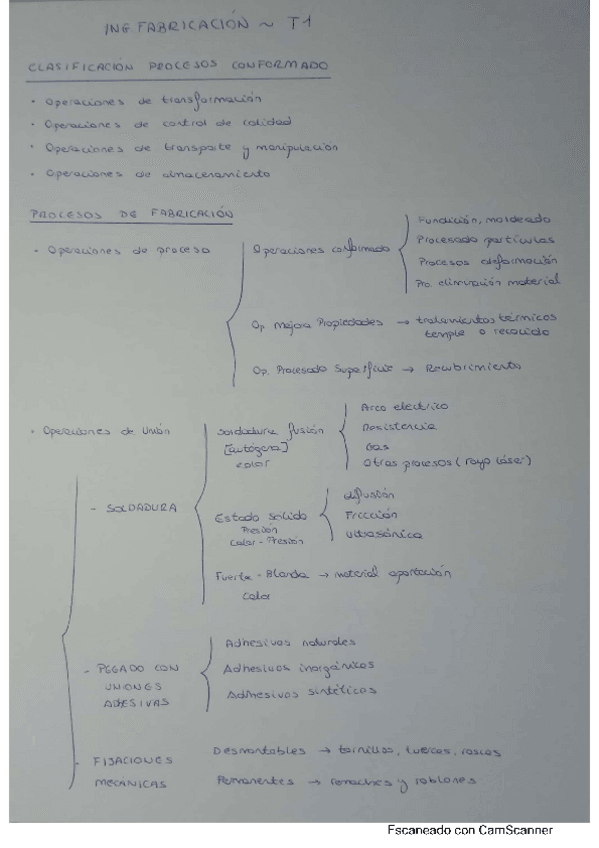 ING. FABRICACIÓN ~ T1
CLASIFICACIÓN PROCESOS CONFORMADO
· Operaciones de transformación
· Operaciones de control de calidad
· Operaciones de transporte y manipulación
· Operaciones de almacenamiento
PROCESOS DE FABRICACIÓN
· Operaciones de proceso
Operaciones conformado
Fundición, moldeado
Procesado partículas
Procesos deformación
Pro. eliminación material
Op. Mejora Propiedades → tratamientos térmicos
temple o recocido
Op. Procesado Superficie → Recubrimiento
· Operaciones de Unión
- SOLDADURA
Soldadura fusión
[autógena]
calor
Arco electrico
Resistencia
Gas
Otros procesos (rayo láser)
Estado sólido
Presión
Calor - Presión
difusión
Fricción
Ultrasónica
Fuerte - Blanda → material aportación
Calor
- PEGADO CON
UNIONES
ADHESIVAS
Adhesivos naturales
Adhesivos inorgánicos
Adhesivos sintéticos
- FIJACIONES
MECÁNICAS
Desmontables → tornillos, tuercas, roscas
Permanentes → remaches y roblones
Escaneado con CamScanner